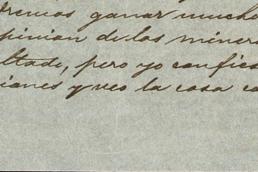 dremos ganar mucho
pinion de las minera
ltade, pero yo confies
iones y veo la casa co